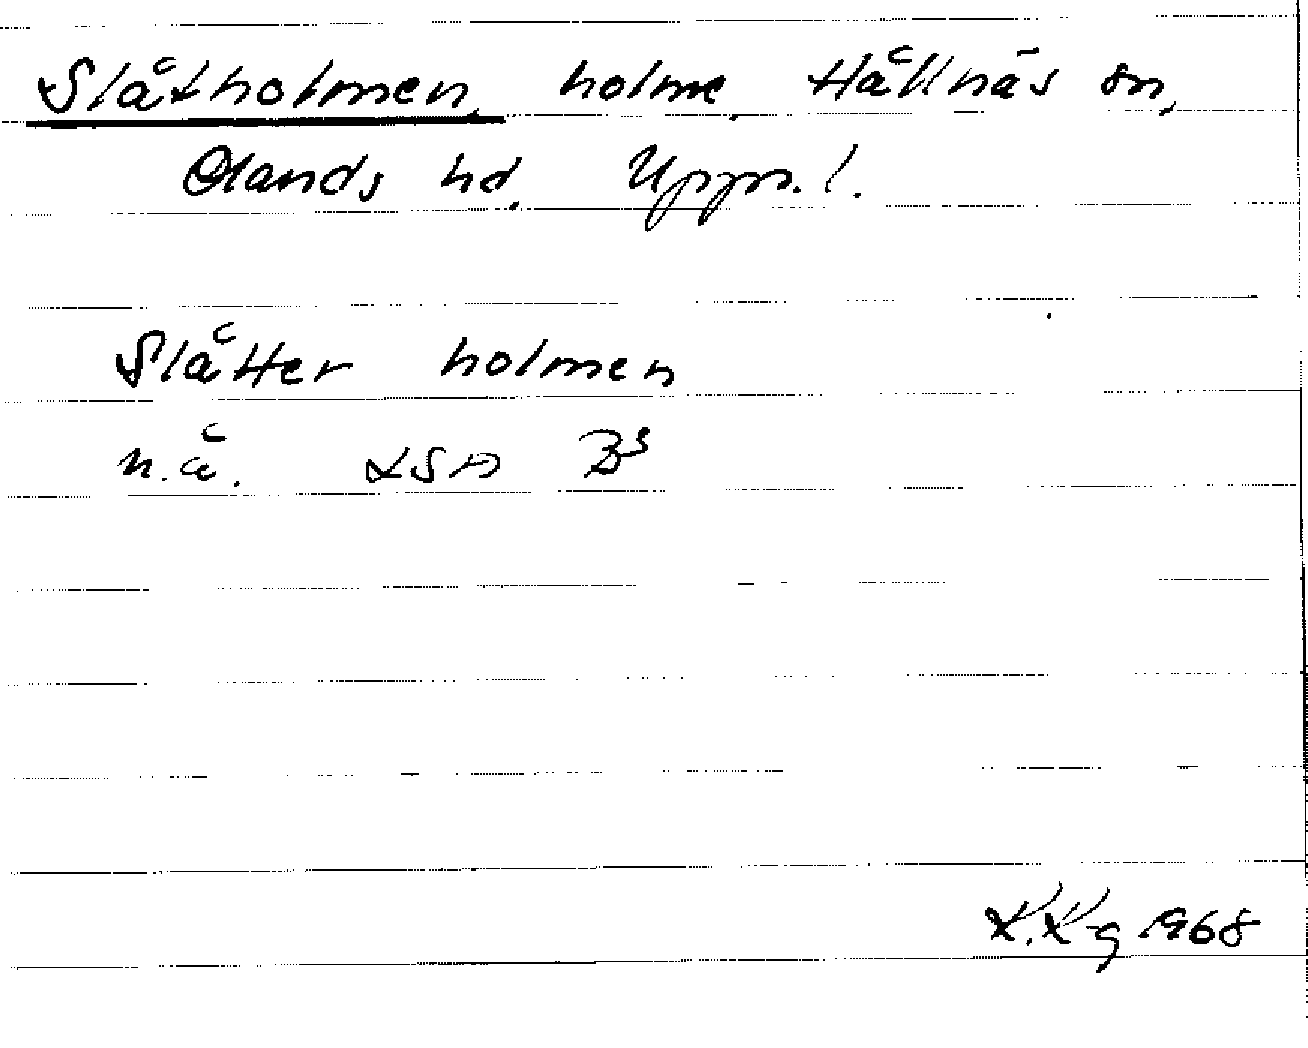 Slåtholmen, holme, Hållnäs sn,
Olands hd, Upps. l.
Slåtter holmen
n.å. LSA B³
K.K-g 1968